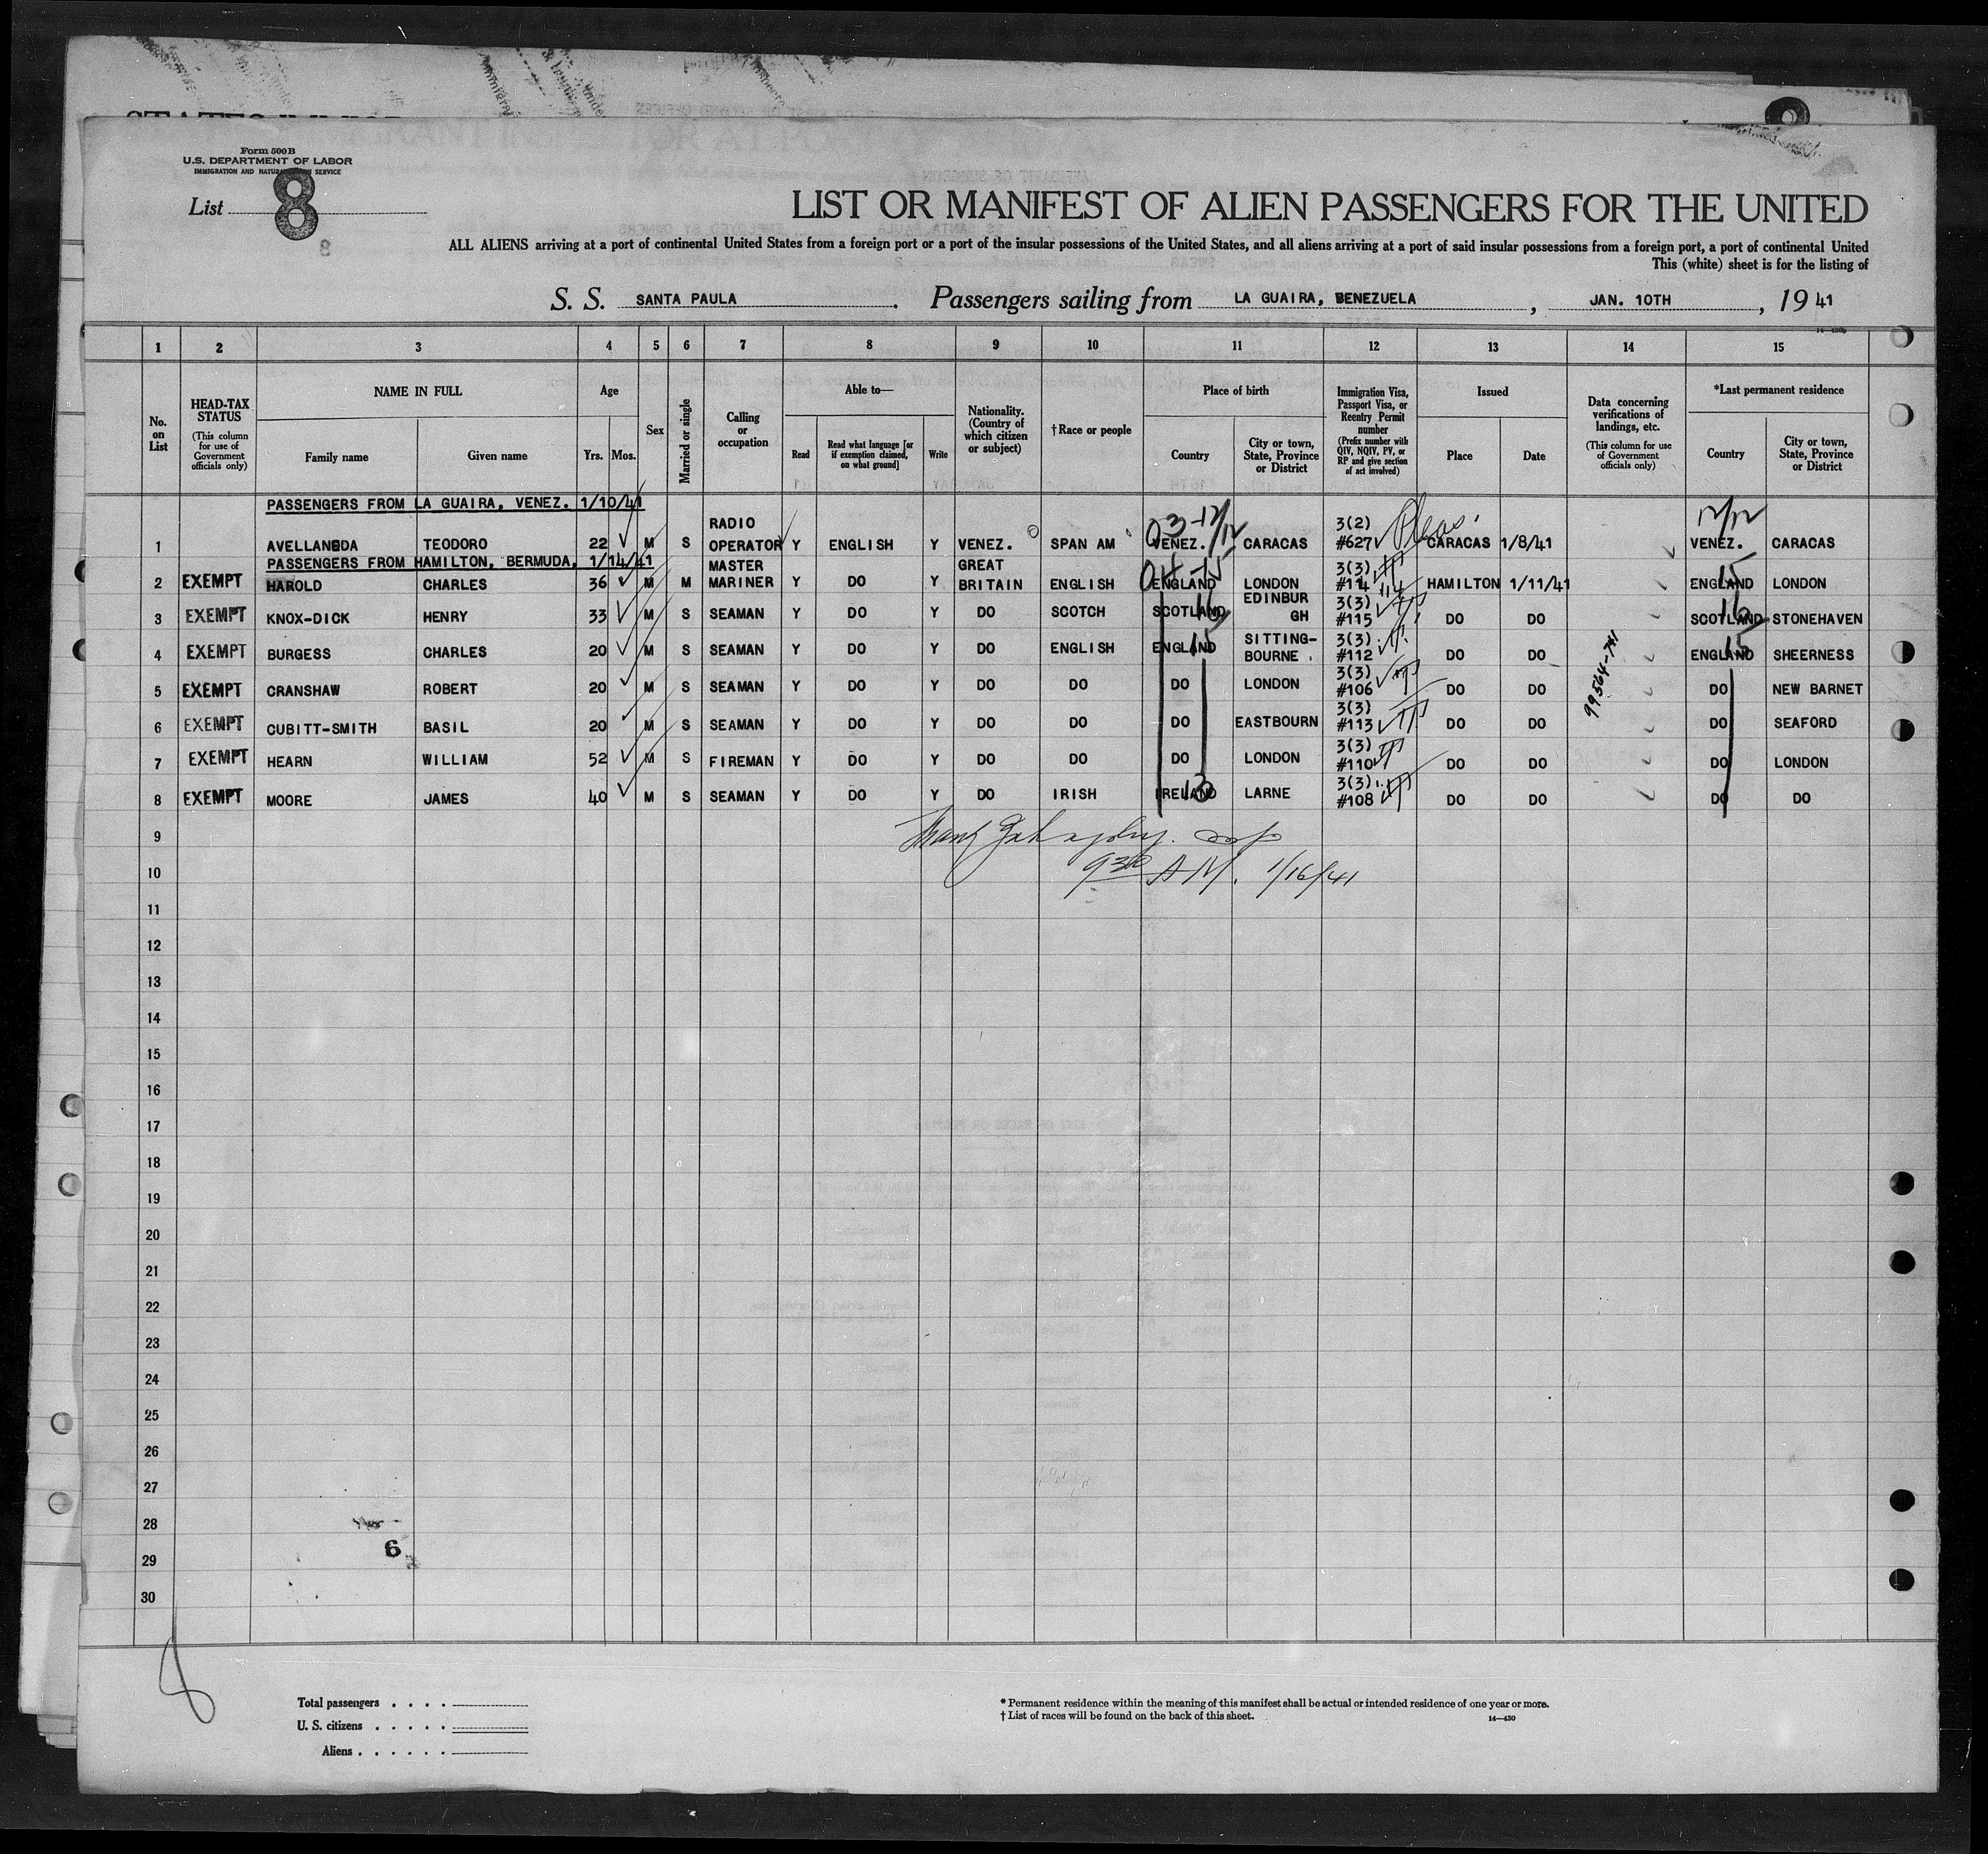 Form 500 B
U.S. DEPARTMENT OF LABOR
IMMIGRATION AND NATURALIZATION SERVICE
List 8
LIST OR MANIFEST OF ALIEN PASSENGERS FOR THE UNITED
ALL ALIENS arriving at a port of continental United States from a foreign port or a port of the insular possessions of the United States, and all aliens arriving at a port of said insular possessions from a foreign port, a port of continental United
This (white) sheet is for the listing of
S. S. SANTA PAULA. Passengers sailing from LA GUAIRA, BENEZUELA, JAN. 10TH, 19 41
1 2 3 4 5 6 7 8 9 10 11 12 13 14 15
No. on List
HEAD-TAX STATUS (This column for use of Government officials only)
NAME IN FULL Family name Given name
Age Yrs. Mos.
Sex
Married or single
Calling or occupation
Able to— Read Read what language [or if exemption claimed, on what ground] Write
Nationality. (Country of which citizen or subject)
†Race or people
Place of birth Country City or town, State, Province or District
Immigration Visa, Passport Visa, or Reentry Permit number (Prefix number with QIV, NQIV, PV, or RP and give section of act involved)
Issued Place Date
Data concerning verifications of landings, etc. (This column for use of Government officials only)
*Last permanent residence Country City or town, State, Province or District
PASSENGERS FROM LA GUAIRA, VENEZ. 1/10/41
1 AVELLANEDA TEODORO 22 M S RADIO OPERATOR Y ENGLISH Y VENEZ. SPAN AM VENEZ. CARACAS 3(2) #627 CARACAS 1/8/41 VENEZ. CARACAS
03-12/12 12/12
PASSENGERS FROM HAMILTON, BERMUDA, 1/14/41
2 EXEMPT HAROLD CHARLES 36 M M MASTER MARINER Y DO Y GREAT BRITAIN ENGLISH ENGLAND LONDON 3(3) #114 114 HAMILTON 1/11/41 ENGLAND LONDON
04-15 15
3 EXEMPT KNOX-DICK HENRY 33 M S SEAMAN Y DO Y DO SCOTCH SCOTLAND EDINBUR GH 3(3) #115 DO DO SCOTLAND STONEHAVEN
16 16
4 EXEMPT BURGESS CHARLES 20 M S SEAMAN Y DO Y DO ENGLISH ENGLAND SITTING-BOURNE. 3(3) #112 DO DO ENGLAND SHEERNESS
15 15
5 EXEMPT CRANSHAW ROBERT 20 M S SEAMAN Y DO Y DO DO DO LONDON 3(3) #106 DO DO DO NEW BARNET
99564-741
6 EXEMPT CUBITT-SMITH BASIL 20 M S SEAMAN Y DO Y DO DO DO EASTBOURN 3(3) #113 DO DO DO SEAFORD
7 EXEMPT HEARN WILLIAM 52 M S FIREMAN Y DO Y DO DO DO LONDON 3(3) #110 DO DO DO LONDON
8 EXEMPT MOORE JAMES 40 M S SEAMAN Y DO Y DO IRISH IRELAND LARNE 3(3) #108 DO DO DO DO
13
9
930 AM. 1/16/41
10
11
12
13
14
15
16
17
18
19
20
21
22
23
24
25
26
27
28
6
29
30
8
Total passengers . . . .
U. S. citizens . . . . .
Aliens . . . . . .
* Permanent residence within the meaning of this manifest shall be actual or intended residence of one year or more.
† List of races will be found on the back of this sheet.
14—430